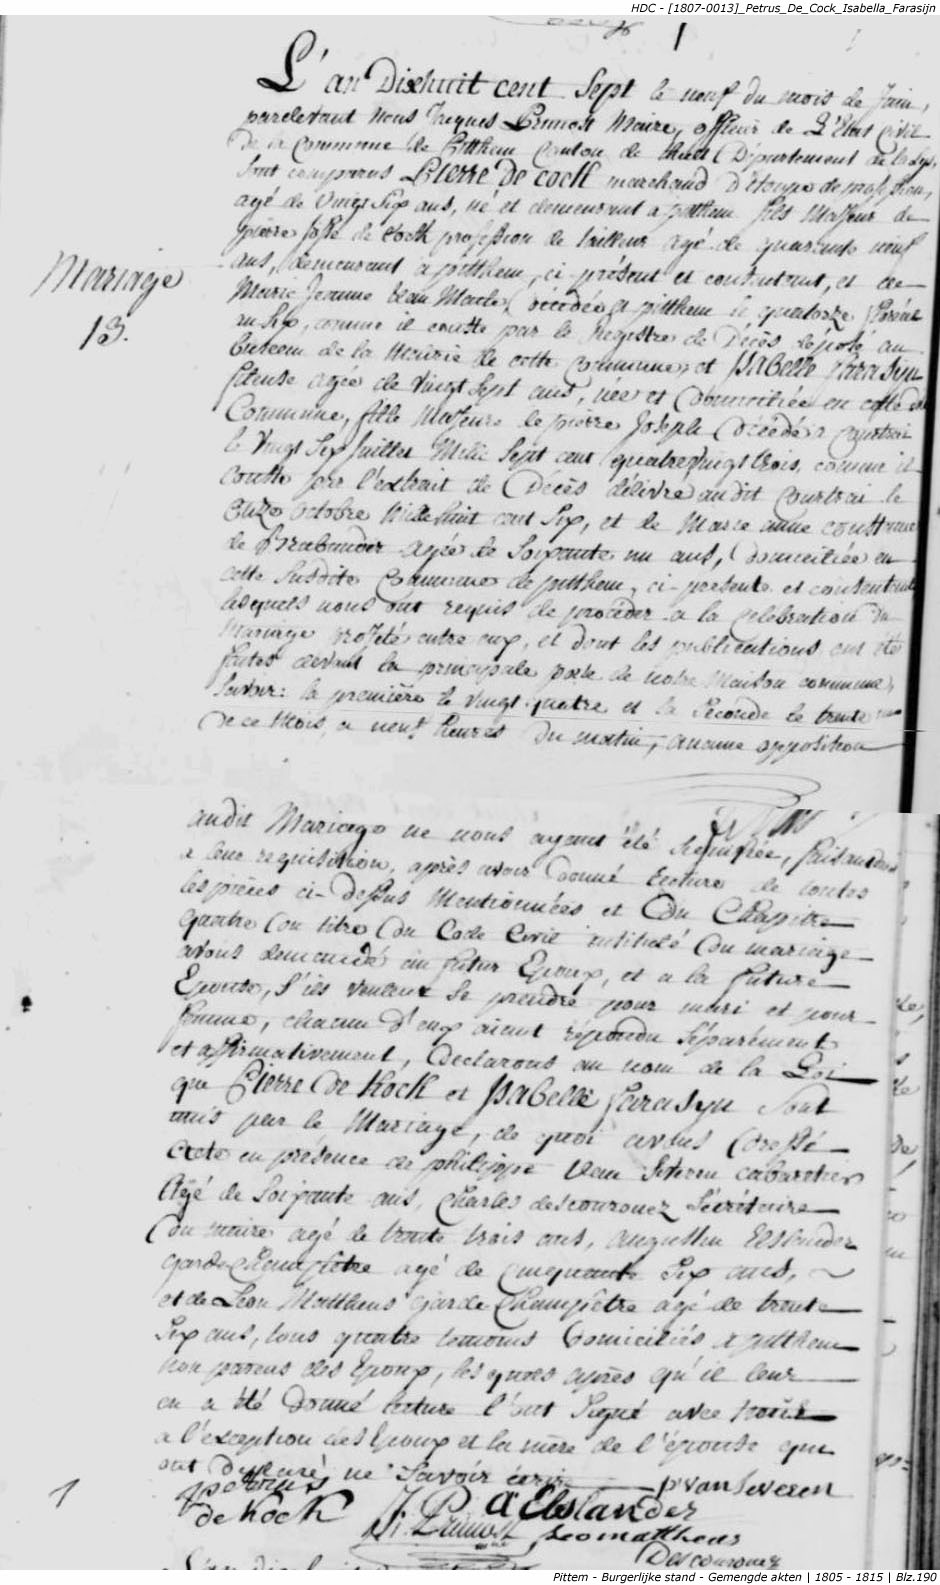 HDC - [1807-0013]_Petrus_De_Cock_Isabella_Farasijn
L'an Dixhuit cent Sept le neuf du mois de Juin,
pardevant Nous Jacques Prinost Maire, officier de L'Etat Civil
De la Commune de Pitthem Canton de thielt Département de la Lys,
Sont comparus Pierre De Cock marchand D'étoupe de profession,
agé de Vingt Six ans, né et demeurant a pitthem fils Majeur de
pierre Josse de Cock profession de tailleur agé de quarante neuf
ans, demeurant a pitthem, ci présent et consentant, et de
Marie Jeanne Van Maele, décédée a pitthem le quatorze
an Six, comme il conste par le Registre de Décès déposé au
bureau de la Mairie de cette commune, et Isabelle farasijn
fileuse agée de Vingt Sept ans, née et Domiciliée en cette
Commune, fille Majeure de pierre Joseph Décédé a Courtrai
le Vingt Six Juillet Mille Sept cent quatrevingt trois, comme il
conste par l'extrait de Décès délivré audit Courtrai le
Onze Octobre Mille huit cent Six, et de Marie anne
de Brabander agée de Soixante un ans, Domiciliée en
cette Susdite Commune de pitthem, ci-présente et consentante
lesquels nous ont requis de procéder a la celebration du
Mariage projeté entre eux, et dont les publications ont été
faites devant la principale porte de notre Maison commune,
Savoir: la première le vingt quatre et la Seconde le trente un
De ce Mois, a neuf heures du matin, aucune opposition
Mariage
13.
audit Mariage ne nous ayant été Signifiée, faisant droit
a leur requisition, après avoir donné Lecture de toutes
les pièces ci-Dessus Mentionnées et Du Chapitre
quatre Du titre Du Code Civil intitulé Du mariage
avons demandé au futur Epoux, et a la future
Epouse, S'ils veulent Se prendre pour mari et pour
femme, chacun d'eux aiant répondu Séparément
et affirmativement, Declarons au nom de la Loi
que Pierre De Kock et Isabelle farasyn Sont
unis par le Mariage, de quoi avons Dressé
Acte en présence de philippe Van Severen cabaretier
Agé de Soixante ans, Charles descouronez Secrétaire
Du maire agé de trente trois ans, augustin Elslander
garde Champêtre agé de Cinquante Six ans,
et de Léon Matthens Garde Champêtre agé de trente
Six ans, tous quatre temoins Domiciliés a pitthem
non parens des Epoux, les quels après qu'il leur
en a été Donné lecture l'ont Signé avec Nous
a l'exception des Epoux et la mère de l'épouse qui
ont Declaré ne Savoir écrire
petrus
de Kock
J: Prinost
A: Elslander
p van Severen
Leo matthens
Descouronez
Pittem - Burgerlijke stand - Gemengde akten | 1805 - 1815 | Blz.190